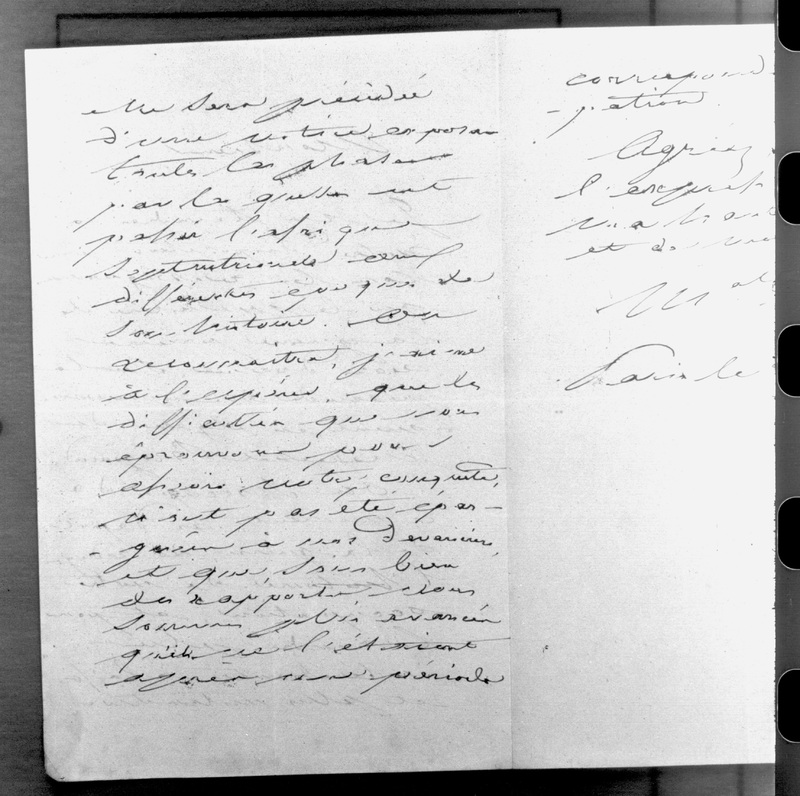 elle sera précédée
d'une notice exposan
toutes les phases
par les quelles ont
passé l'afrique
Septentrionale aux
différentes époques de
son histoire. On
reconnaitra, j'aime
à l'espérer, que les
difficultés que nous
éprouvons pour
asseoir notre conquête,
n'ont pas été épar-
-gnées à nos devanciers,
et que, sous bien
des rapports nous
sommes plus avancés
qu'ils ne l'étaient
après une période
correspond
-pation.
Agréez
l'expres
et de
Paris le